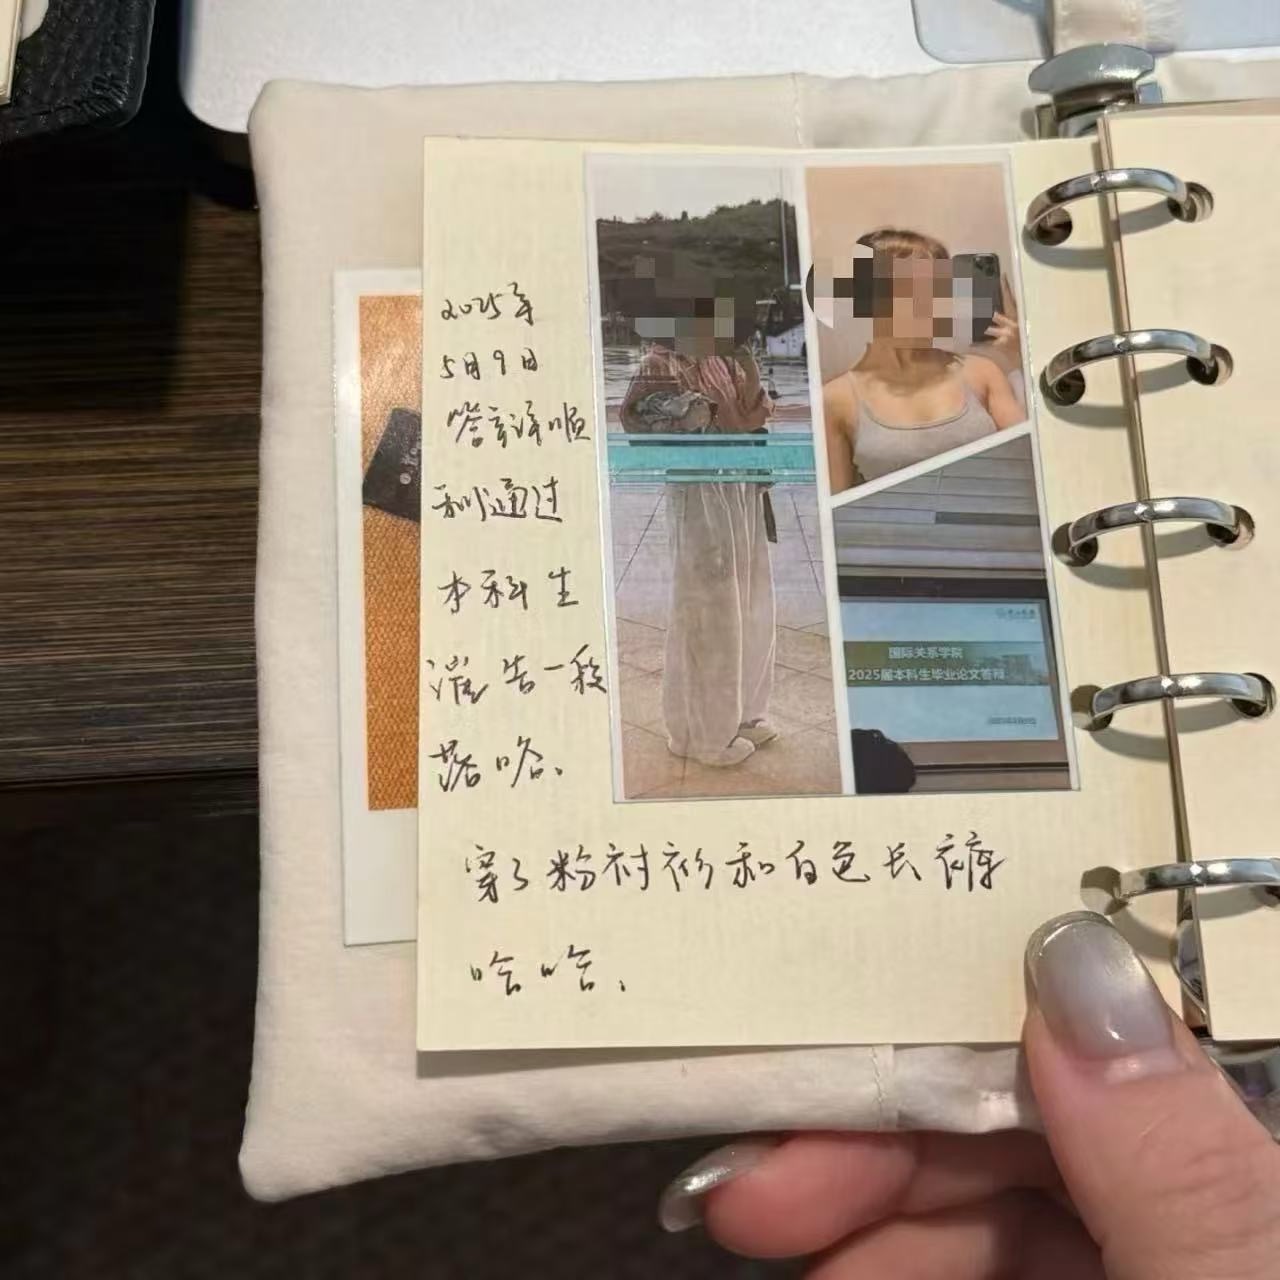 2025年
5月9日
答辩顺
利通过
本科生
涯告一段
落啦、
穿了粉衬衫和白色长裤
哈哈、
国际关系学院
2025届本科生毕业论文答辩